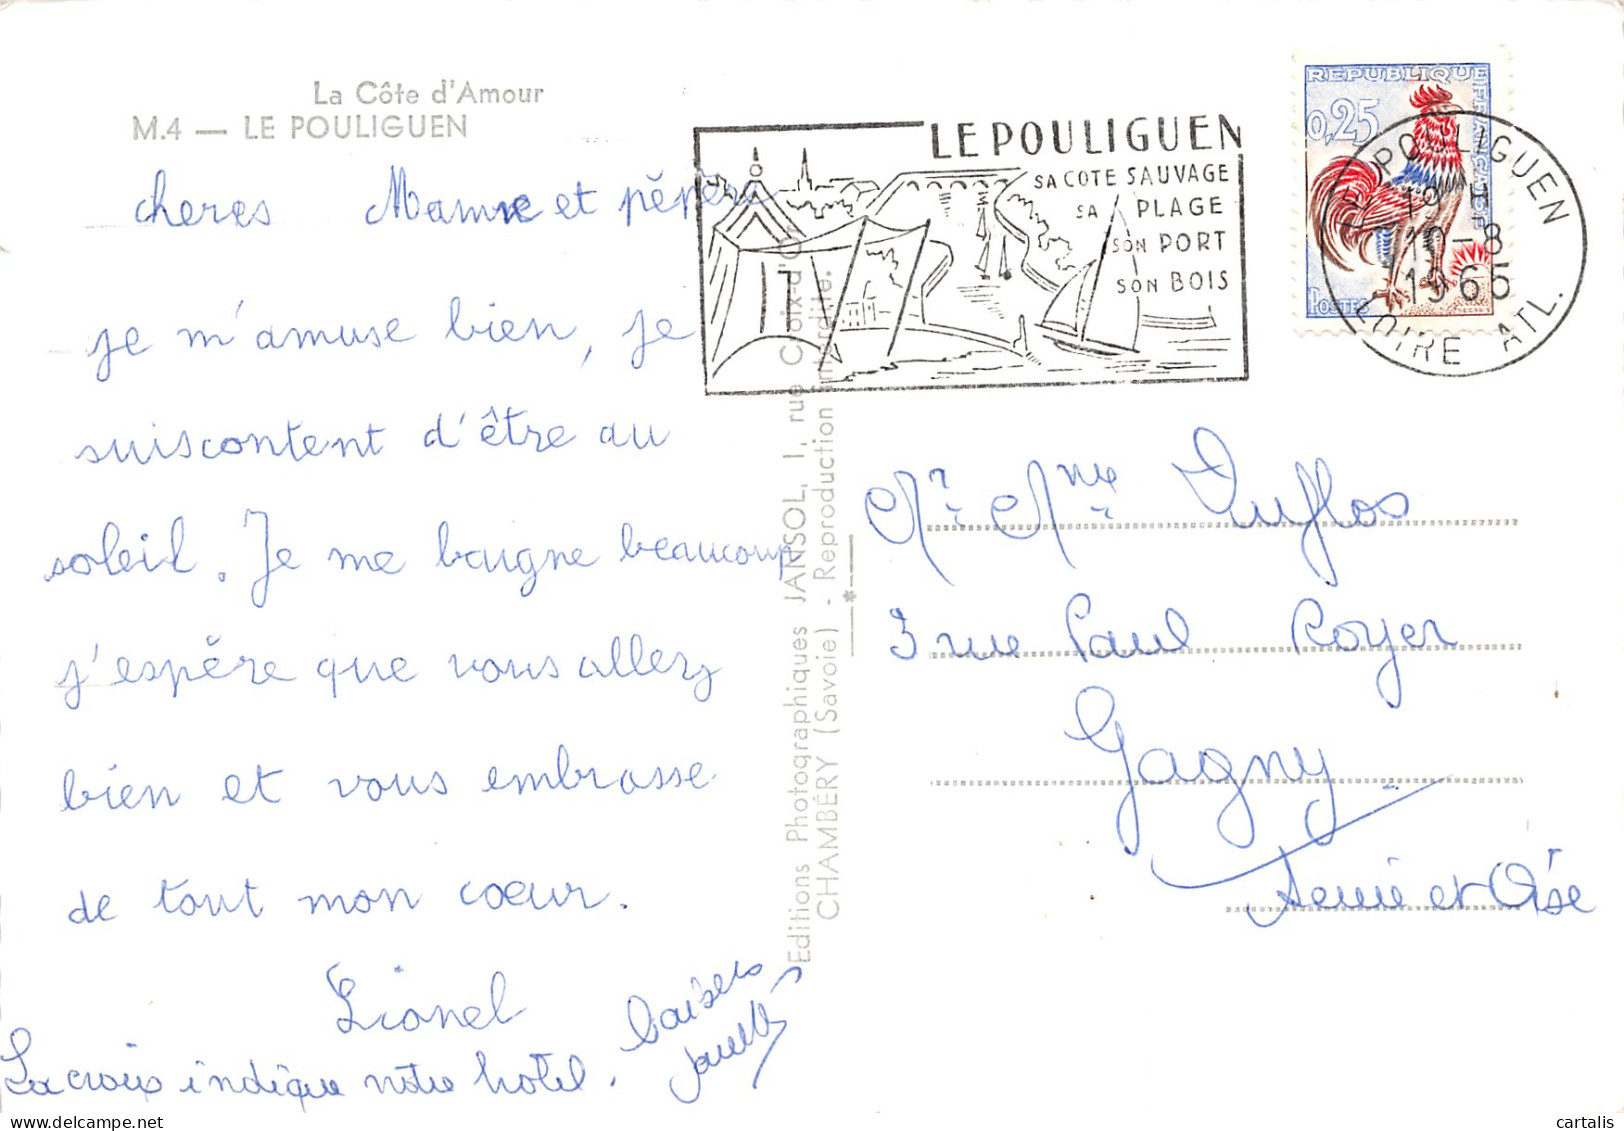 La Côte d'Amour
M.4 — LE POULIGUEN
cheres Mamie et pépère
je m'amuse bien, je
suis content d'être au
soleil. Je me baigne beaucoup
j'espère que vous allez
bien et vous embrasse
de tout mon cœur.
Lionel
La croix indique notre hotel.
baisers
Editions Photographiques JANSOL, 1, rue Croix-d'Or
CHAMBÉRY (Savoie) - Reproduction interdite.
LE POULIGUEN
SA COTE SAUVAGE
SA PLAGE
SON PORT
SON BOIS
REPUBLIQUE FRANÇAISE
0,25
POSTES
LE POULIGUEN
19 H
10-8
1965
LOIRE ATL.
Mr Mme Duflos
3 rue Paul Royer
Gagny
Seine et Oise
delcampe.net
cartalis